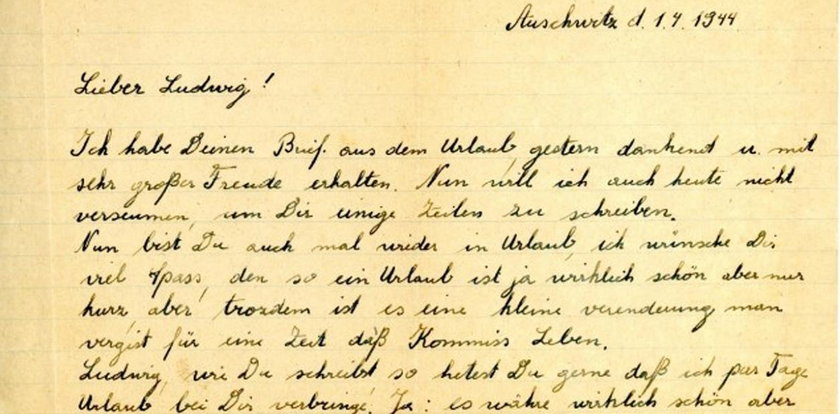 Auschwitz d. 1.4. 1944.
Lieber Ludwig!
Ich habe Deinen Brief. aus dem Urlaub, gestern dankend u. mit
sehr großer Freude erhalten. Nun will ich auch heute nicht
verseumen, um Dir einige Zeilen zu schreiben.
Nun bist Du auch mal wieder in Urlaub, ich wünsche Dir
viel Spass, den so ein Urlaub ist ja wirklich schön aber nur
kurz aber, trozdem ist es eine kleine verenderung man
vergist für eine Zeit daß Kommiss Leben.
Ludwig, wie Du schreibst, so hetest Du gerne daß ich par Tage
Urlaub bei Dir verbringe. Ja: es währe wirklich schön aber